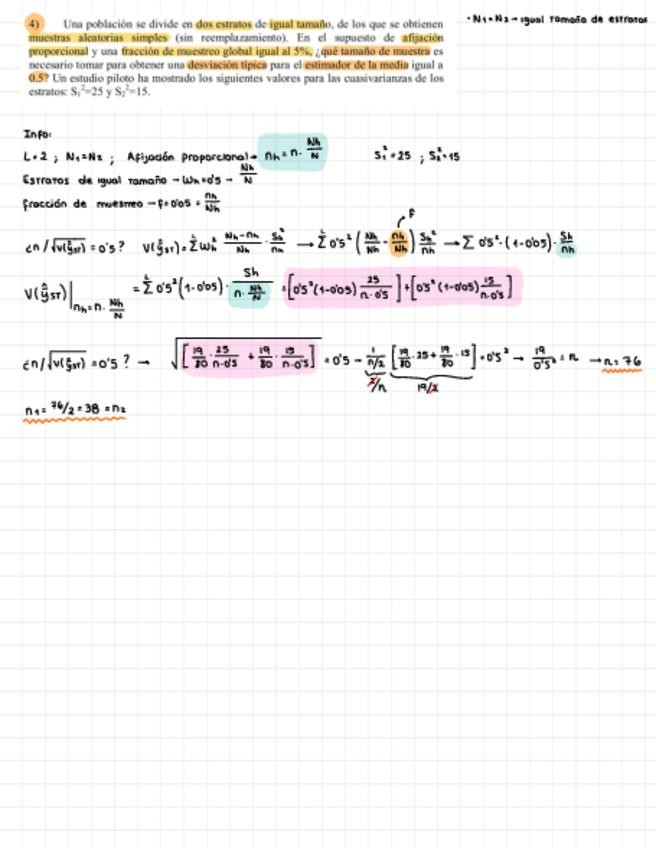 4) Una población se divide en dos estratos de igual tamaño, de los que se obtienen
muestras aleatorias simples (sin reemplazamiento). En el supuesto de afijación
proporcional y una fracción de muestreo global igual al 5%, ¿qué tamaño de muestra es
necesario tomar para obtener una desviación típica para el estimador de la media igual a
0.5? Un estudio piloto ha mostrado los siguientes valores para las cuasivarianzas de los
estratos: S₁²=25 y S₂²=15.
· N₁=N₂ → igual tamaño de estratos
Info:
L=2 ; N₁=N₂ ; Afijación proporcional → nh = n · Nh/N    S₁²=25 ; S₂²=15
Estratos de igual tamaño → Wh=0'5 → Nh/N
fracción de muestreo → f=0'05 = nh/Nh
¿n/√V(ŷST) = 0'5? V(ŷST) = Σ Wh² (Nh-nh)/Nh · Sh²/nh → Σ 0'5² (Nh/Nh - nh/Nh) Sh²/nh → Σ 0'5² · (1-0'05) · Sh/nh
F
V(ŷST)| nh=n · Nh/N = Σ 0'5² (1-0'05) · Sh/(n · Nh/N) = [0'5² (1-0'05) 25/(n·0'5)] + [0'5² (1-0'05) 15/(n·0'5)]
¿n/√V(ŷST) = 0'5? → √[19/80 · 25/(n·0'5) + 19/80 · 15/(n·0'5)] = 0'5 → 1/(n/2) [19/80 · 25 + 19/80 · 15] = 0'5² → 19/0'5² = n → n=76
2/n 19/2
n₁ = 76/2 = 38 = n₂